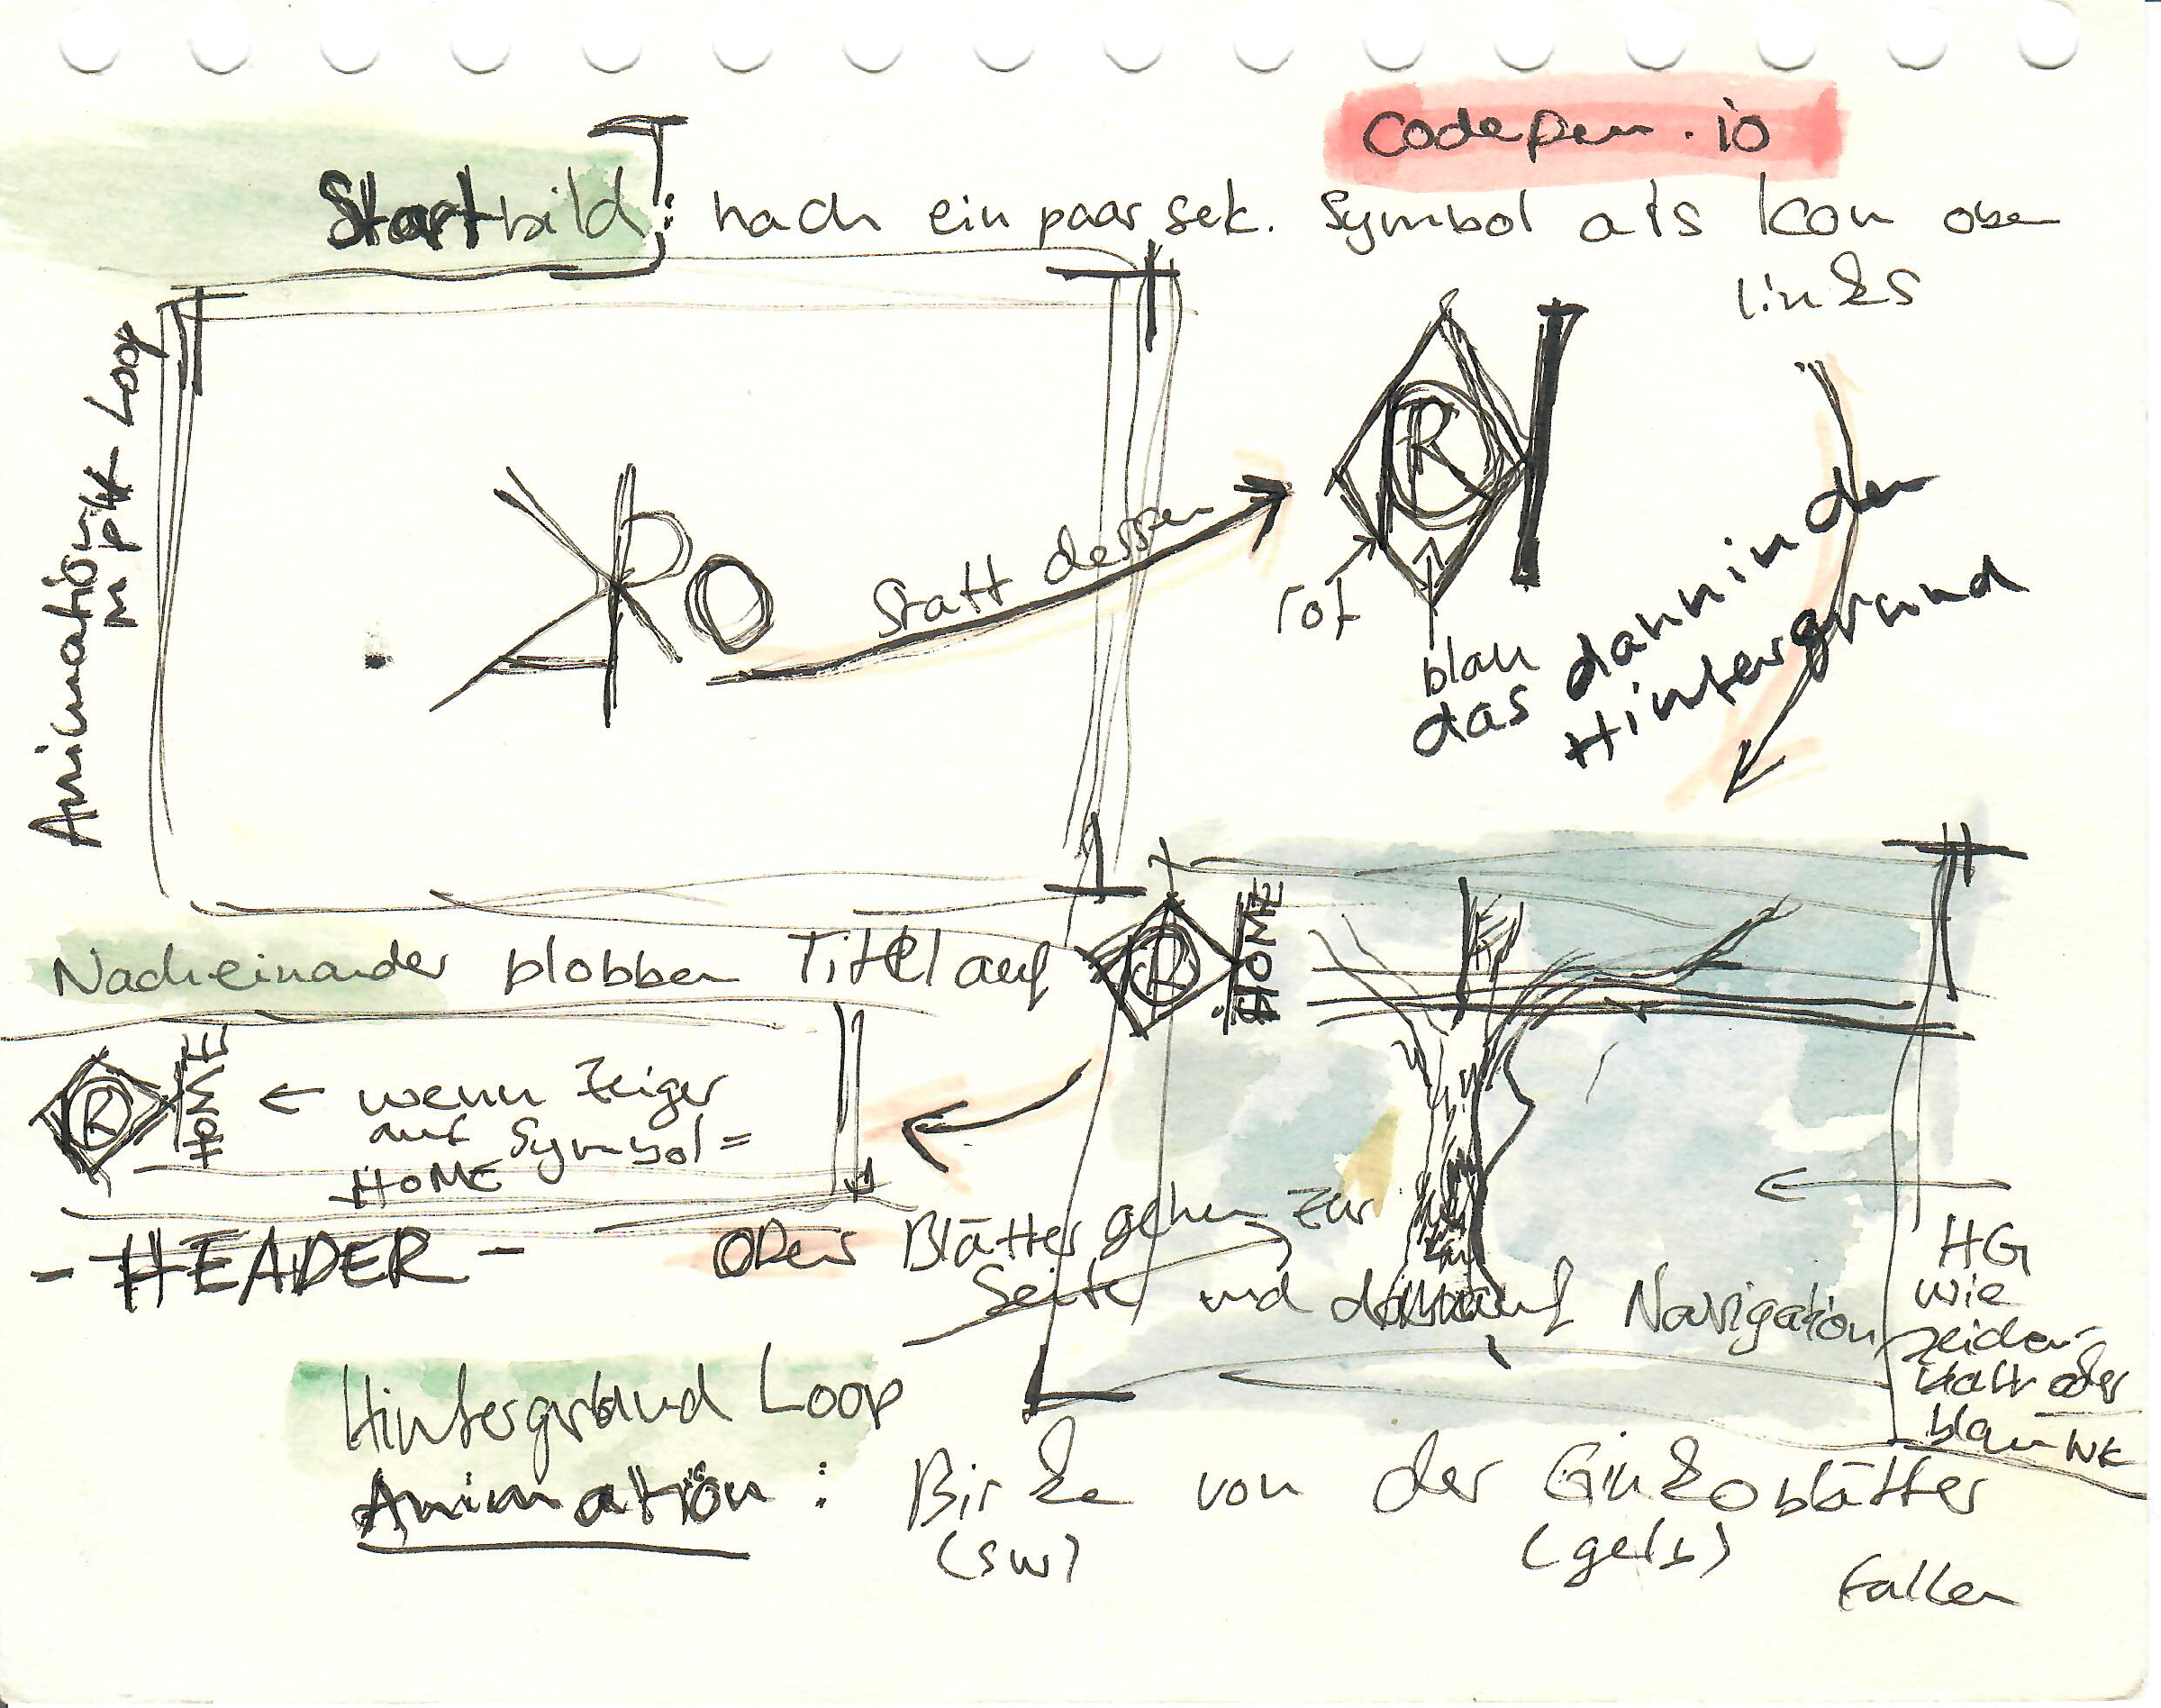 Codepen.io
Startbild: nach ein paar sek. Symbol als Icon oben
links
Animation
mp4 Loop
RO
statt dessen
R
rot
blau
das dann in den
Hintergrund
Nacheinander plobben Titel auf
R HOME
R HOME ← wenn Zeiger
auf Symbol =
HOME
- HEADER -
oder Blätter gehen zur
Seite und darauf Navigation
HG
wie
zeichen-
blatt oder
blau
Hintergrund Loop
Animation: Birke von der Ginkoblätter
(sw) (gelb)
fallen